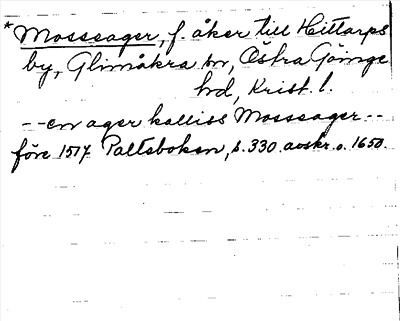 *Mosseager, f. åker till Hittarps
by, Glimåkra sn, Östra Göinge
hd, Krist. l.
--en ager kalliss Mosseager--
före 1517 Palteboken, s. 330 avskr. o. 1650.